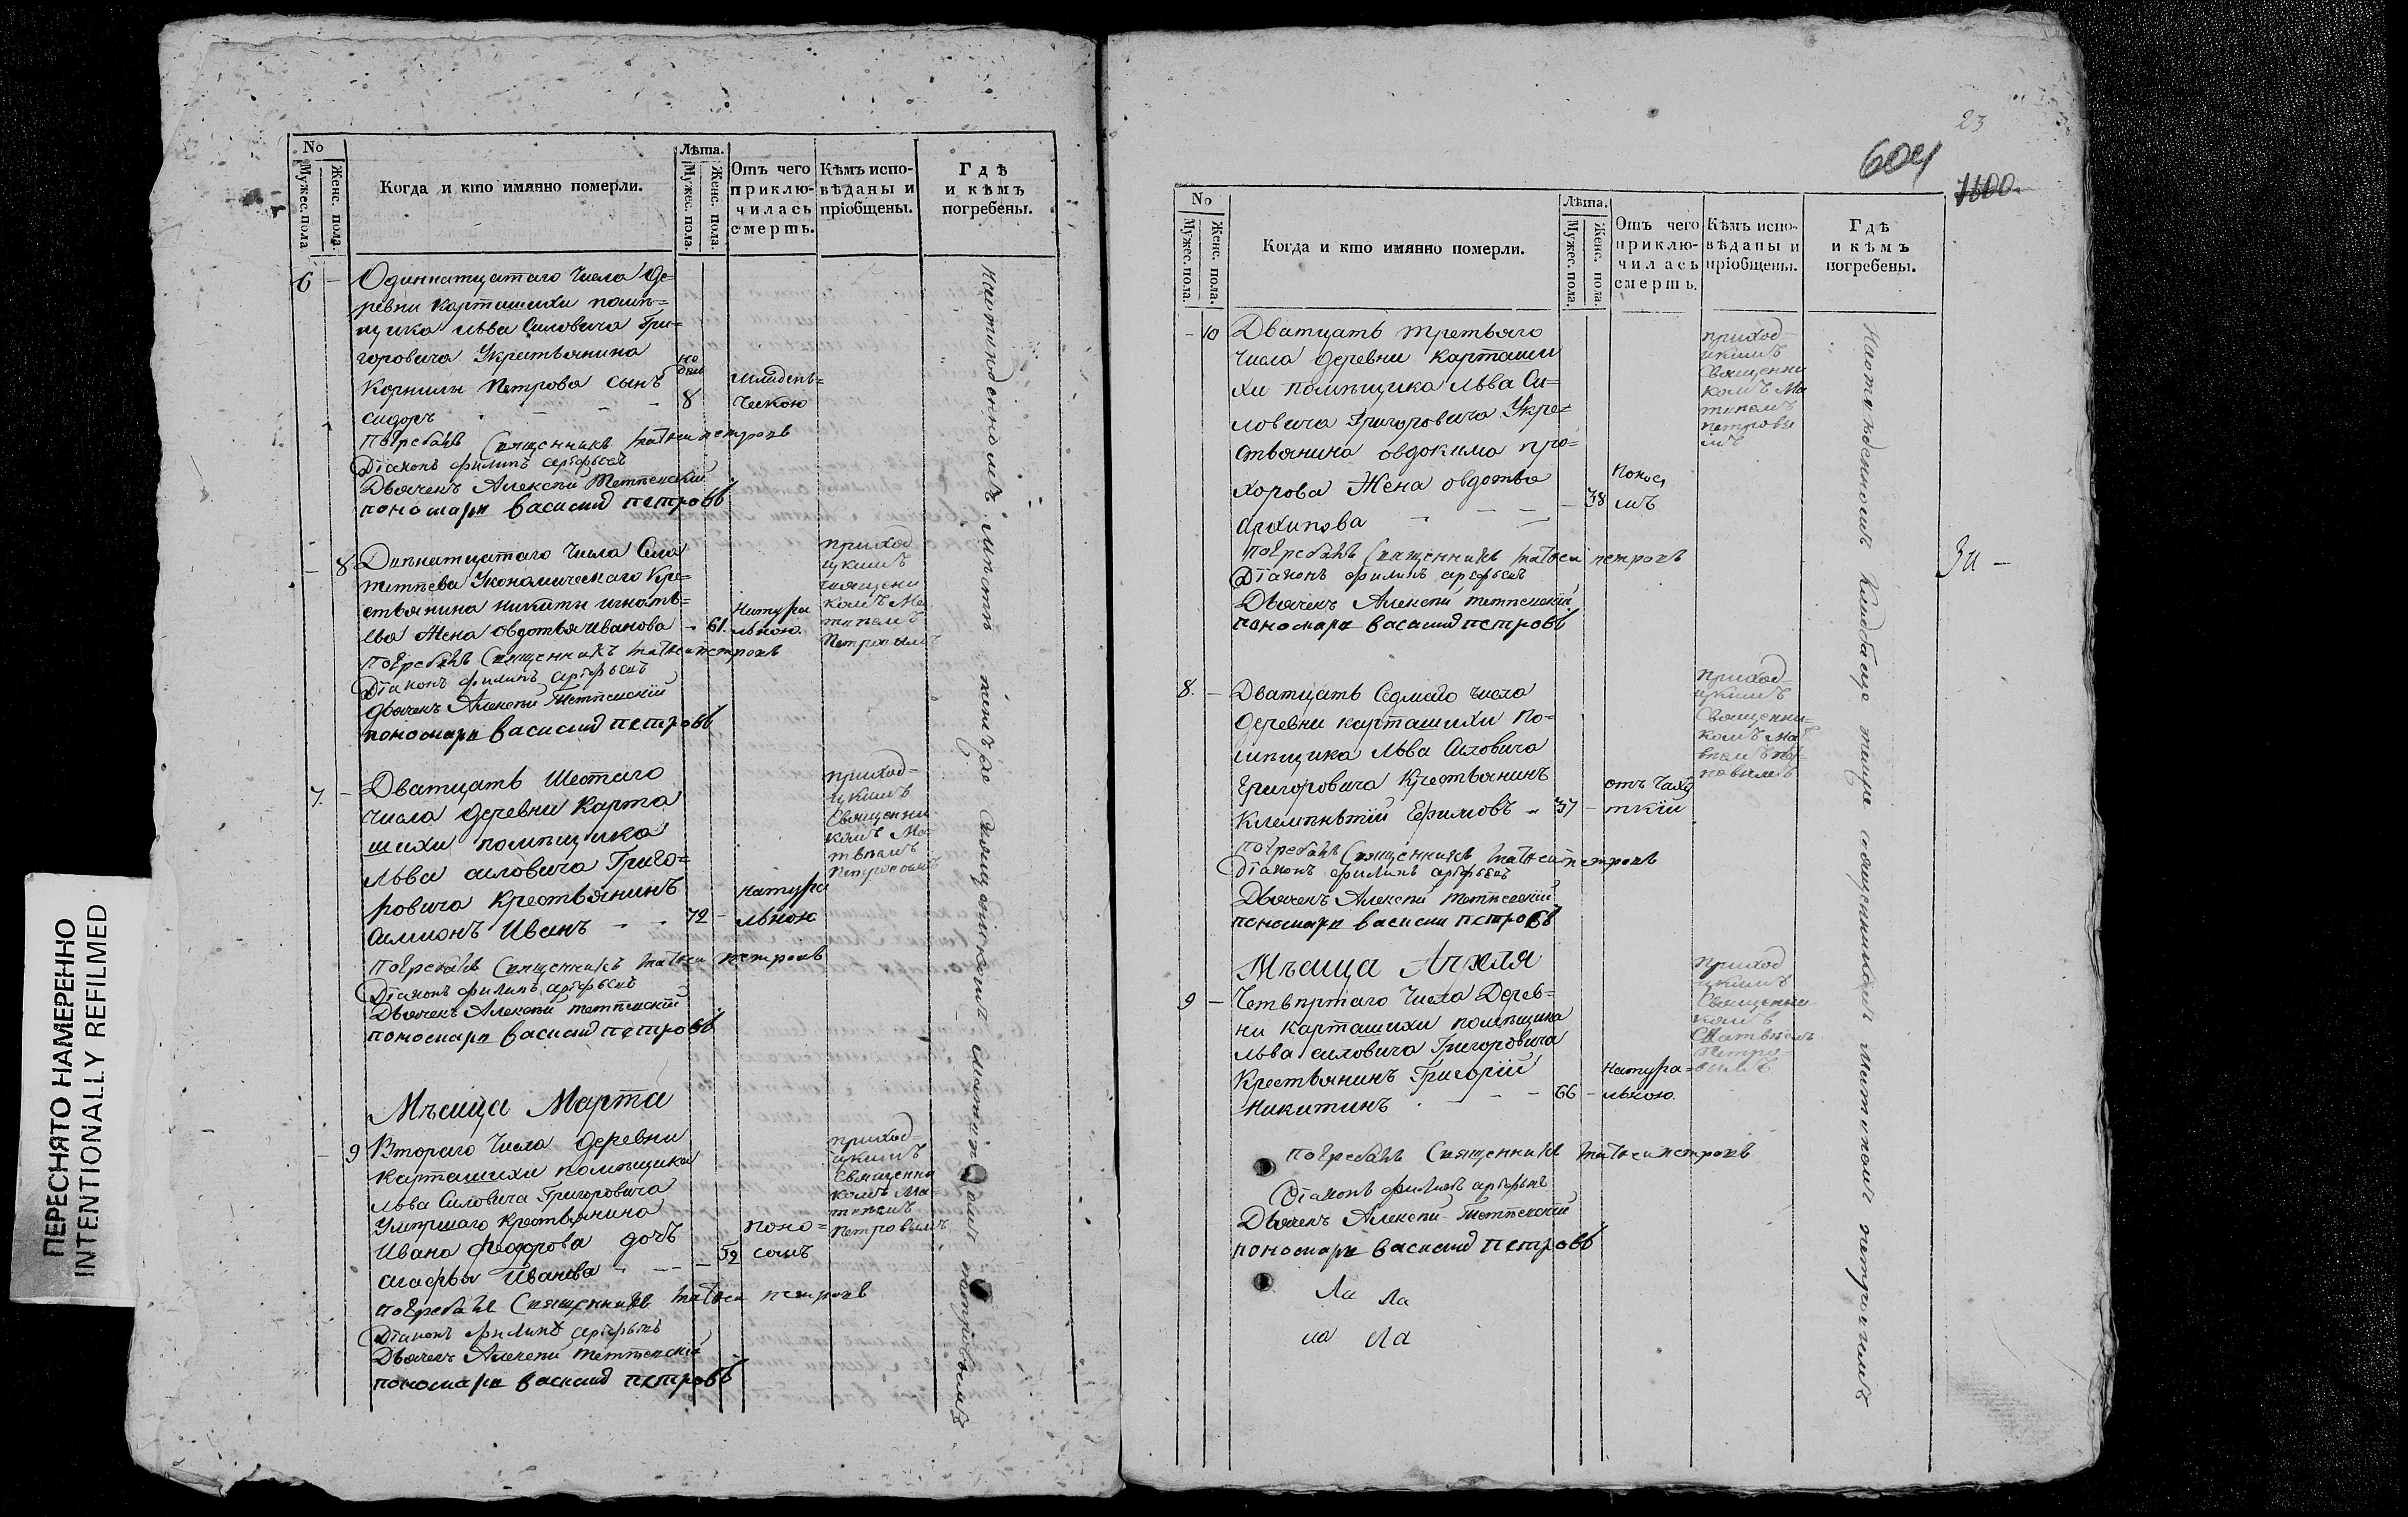 ПЕРЕСНЯТО НАМЕРЕННО
INTENTIONALLY REFILMED
No
Мужес. пола
Женс. пола.
Когда и кто имянно померли.
Лѣта.
Мужес. пола.
Женс. пола.
Отъ чего
приклю-
чилась
смерть.
Кѣмъ испо-
вѣданы и
пріобщены.
Гдѣ
и кѣмъ
погребены.
6 - Одиннатцатаго Числа де-
ревни Карташихи помѣ-
щика Льва Силовича Гри-
горовича Крестьянина
Корнилы Петрова сынъ
сидоръ 8
младенѣ-
ческою
погребалъ Священникъ матвеи петровъ
Діаконъ филипъ
Дьячекъ Алексѣй
пономарь василий петровъ
- 8 Числа Села
Экономическаго Кре-
стьянина никиты игнатѣ-
ева Жена Овдотья иванова - 61.
натура
льною
приход
цкимъ
священи
комъ Ма
твѣемъ
Петровымъ
погребалъ Священникъ матвеи петровъ
Діаконъ филипъ
дьячекъ Алексѣй
пономарь василий петровъ
7. - Дватцать Шестаго
числа деревни Карта
шихи помѣщика
Льва силовича Григо-
ровича Крестьянинъ
Симионъ Иванъ - - 72 -
натура
льною
приход-
цкимъ
Священни
комъ Ма
твѣемъ
Петровымъ
погребалъ Священникъ матвеи петровъ
Діаконъ филипъ
Дьячекъ Алексѣй
пономарь василий петровъ
Мѣсица Марта
- 9 Втораго Числа деревни
Карташихи помѣщика
Льва Силовича Григоровича
Умѣршаго Крестьянина
Ивана Феодорова дочь
Иванова - - - 52
поно-
сомъ
приход-
цкимъ
Священни
комъ Ма
твѣемъ
Петровымъ
погребалъ Священникъ матвеи петровъ
Діаконъ филипъ
Дьячекъ Алексѣй
пономарь василий петровъ
На отведенномъ мѣстѣ Священникомъ петровымъ
23
604
1600
No
Мужес. пола.
Женс. пола.
Когда и кто имянно померли.
Лѣта.
Мужес. пола.
Женс. пола.
Отъ чего
приклю-
чилась
смерть.
Кѣмъ испо-
вѣданы и
пріобщены.
Гдѣ
и кѣмъ
погребены.
- 10 Дватцать третьяго
Числа деревни Карташи
хи помѣщика Льва Си-
ловича Григоровича Кре-
стьянина овдокима про-
хорова Жена овдотья
архипова - - - - 38
поносо
мъ
приход-
цкимъ
Священни
комъ Ма
твѣемъ
петровы
мъ
погребалъ Священникъ матвеи петровъ
Діаконъ филипъ
Дьячекъ Алексѣй
пономарь василий петровъ
8. - Дватцать Седмаго числа
деревни карташихи по-
мѣщика Льва Силовича
Григоровича Крестьянинъ
Ефимовъ - 37 -
отъ чахо
ткіи
приход-
цкимъ
Священни-
комъ
погребалъ Священникъ матвеи петровъ
Діаконъ филипъ
Дьячекъ Алексѣй
пономарь василии петровъ
Мѣсица Апреля
9 - Четвѣртаго Числа Дерев-
ни Карташихи помѣщика
Льва силовича Григоровича
Крестьянинъ Григорій
Никитинъ - - - 66 -
натура-
льною
приход
цкимъ
Священни
комъ
Матвѣемъ
Петро-
вымъ
погребалъ Священникъ матвеи петровъ
Діаконъ филипъ
Дьячекъ Алексѣй
пономарь василий петровъ
Ла Ла
ла Ла
На отведенномъ Кладбище темже священникомъ Матвѣемъ петровымъ